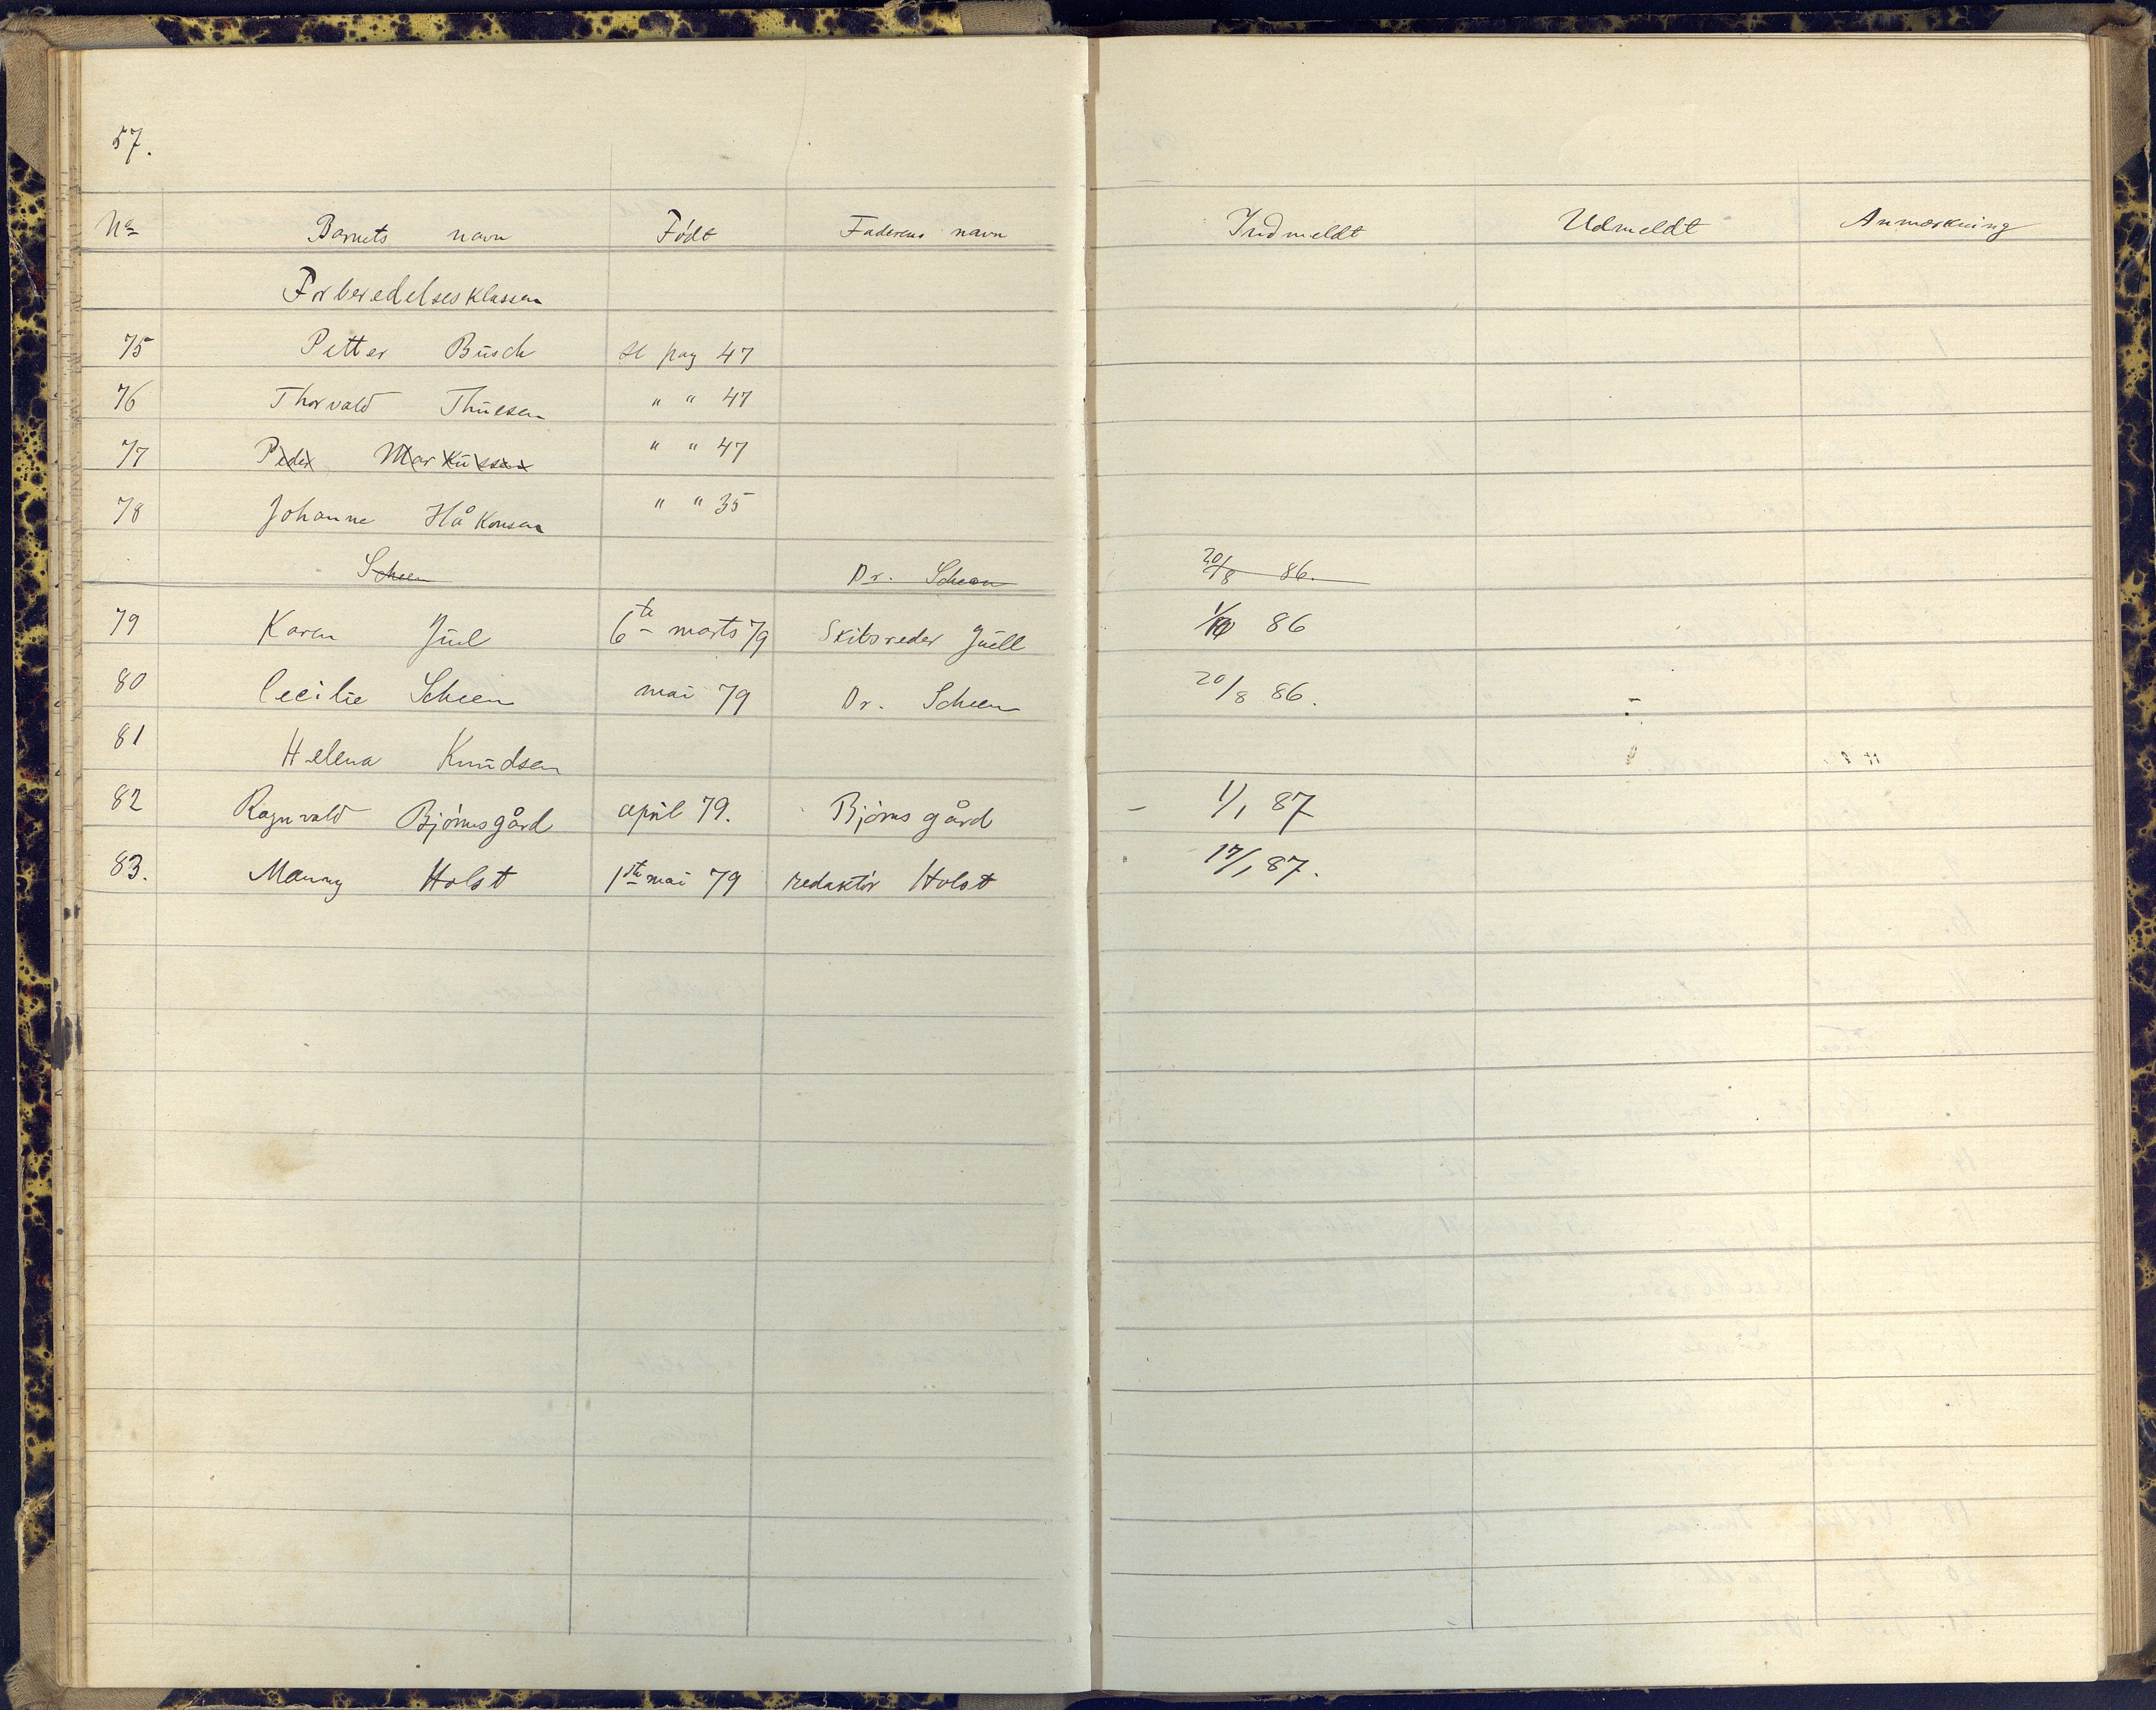 57.
No Barnets navn Født Faderens navn Indmeldt Udmeldt Anmærkning
Forberedelsesklassen
75 Petter Busch se pag 47
76 Thorvald Thuesen " " 47
77 Peder Markussen " " 47
78 Johanne Håkonsen " " 35
Scheen Dr. Scheen 20/8 86.
79 Karen Juel 6te marts 79 Skibsreder Juell 1/10 86
80 Cecilie Scheen mai 79 Dr. Scheen 20/8 86.
81 Helena Knudsen
82 Ragnvald Bjørnsgård april 79. Bjørnsgård 1/1 87
83. Manny Holst 1ste mai 79 redaktør Holst 17/1 87.